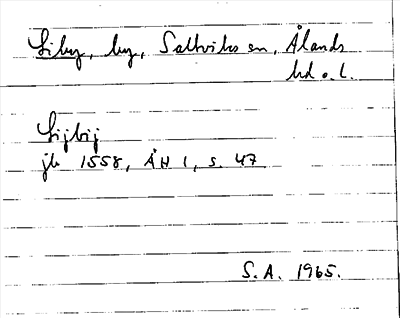 Liby, by, Saltviks sn, Ålands
hd o. l.
Lijbij
jb 1558, ÅH 1, s. 47
S.A. 1965.